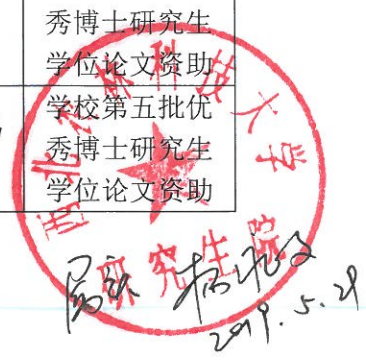 秀博士研究生
学位论文资助
学校第五批优
秀博士研究生
学位论文资助
西北农林科技大学
研究生院
属实
2019.5.29